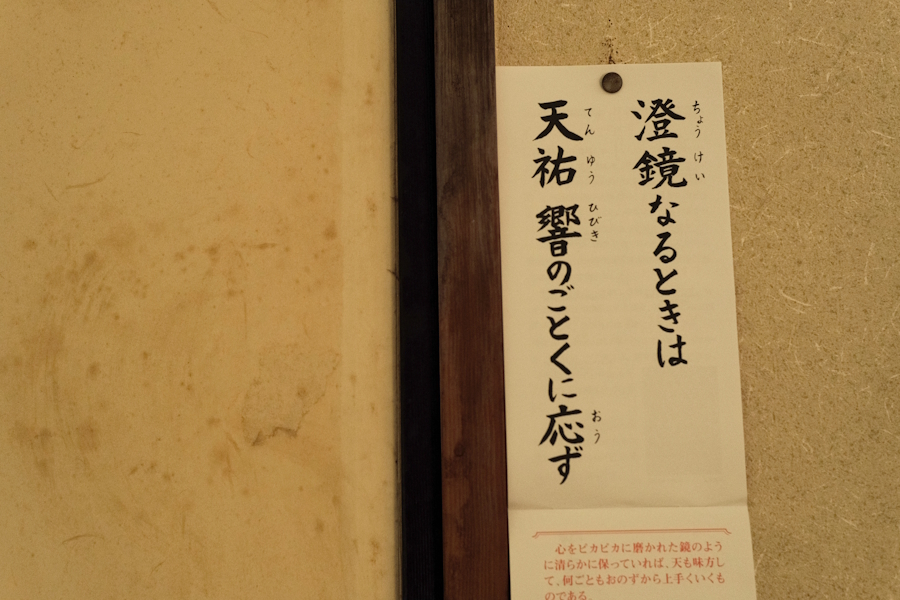 澄鏡なるときは
ちょうけい
天祐響のごとくに応ず
てんゆうひびきおう
心をピカピカに磨かれた鏡のよう
に清らかに保っていれば、天も味方し
て、何ごともおのずから上手くいくも
のである。